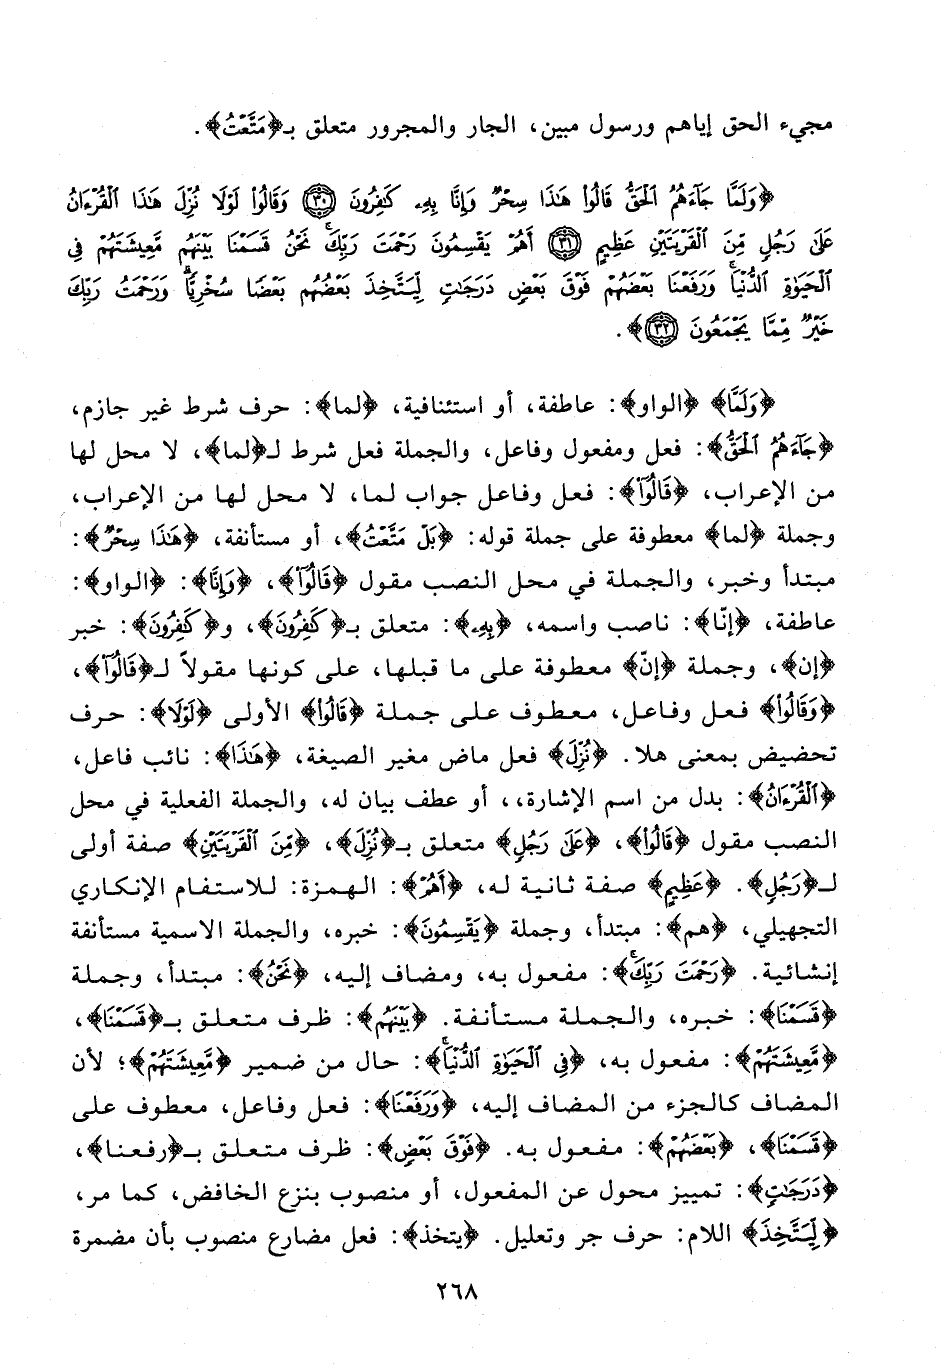 مجيء الحق إياهم ورسول مبين، الجار والمجرور متعلق بـ﴿مَتَّعْتُ﴾.
﴿وَلَمَّا جَآءَهُمُ ٱلْحَقُّ قَالُوا۟ هَٰذَا سِحْرٌ وَإِنَّا بِهِۦ كَٰفِرُونَ ٣٠ وَقَالُوا۟ لَوْلَا نُزِّلَ هَٰذَا ٱلْقُرْءَانُ
عَلَىٰ رَجُلٍ مِّنَ ٱلْقَرْيَتَيْنِ عَظِيمٍ ٣١ أَهُمْ يَقْسِمُونَ رَحْمَتَ رَبِّكَ ۚ نَحْنُ قَسَمْنَا بَيْنَهُم مَّعِيشَتَهُمْ فِى
ٱلْحَيَوٰةِ ٱلدُّنْيَا ۚ وَرَفَعْنَا بَعْضَهُمْ فَوْقَ بَعْضٍ دَرَجَٰتٍ لِّيَتَّخِذَ بَعْضُهُم بَعْضًا سُخْرِيًّا ۗ وَرَحْمَتُ رَبِّكَ
خَيْرٌ مِّمَّا يَجْمَعُونَ ٣٢﴾.
﴿وَلَمَّا﴾ ﴿الواو﴾: عاطفة، أو استئنافية، ﴿لما﴾: حرف شرط غير جازم،
﴿جَآءَهُمُ ٱلْحَقُّ﴾: فعل ومفعول وفاعل، والجملة فعل شرط لـ﴿لما﴾، لا محل لها
من الإعراب، ﴿قَالُوٓا۟﴾: فعل وفاعل جواب لما، لا محل لها من الإعراب،
وجملة ﴿لما﴾ معطوفة على جملة قوله: ﴿بَلْ مَتَّعْتُ﴾، أو مستأنفة، ﴿هَٰذَا سِحْرٌ﴾:
مبتدأ وخبر، والجملة في محل النصب مقول ﴿قَالُوٓا۟﴾، ﴿وَإِنَّا﴾: ﴿الواو﴾:
عاطفة، ﴿إنّا﴾: ناصب واسمه، ﴿بِهِۦ﴾: متعلق بـ﴿كَٰفِرُونَ﴾، و﴿كَٰفِرُونَ﴾: خبر
﴿إن﴾، وجملة ﴿إنّ﴾ معطوفة على ما قبلها، على كونها مقولاً لـ﴿قَالُوٓا۟﴾،
﴿وَقَالُوا۟﴾ فعل وفاعل، معطوف على جملة ﴿قَالُوا۟﴾ الأولى ﴿لَوْلَا﴾: حرف
تحضيض بمعنى هلا. ﴿نُزِّلَ﴾ فعل ماض مغير الصيغة، ﴿هَٰذَا﴾: نائب فاعل،
﴿ٱلْقُرْءَانُ﴾: بدل من اسم الإشارة،، أو عطف بيان له، والجملة الفعلية في محل
النصب مقول ﴿قَالُوا۟﴾، ﴿عَلَىٰ رَجُلٍ﴾ متعلق بـ﴿نُزِّلَ﴾، ﴿مِّنَ ٱلْقَرْيَتَيْنِ﴾ صفة أولى
لـ﴿رَجُلٍ﴾. ﴿عَظِيمٍ﴾ صفة ثانية له، ﴿أَهُمْ﴾: الهمزة: للاستفام الإنكاري
التجهيلي، ﴿هم﴾: مبتدأ، وجملة ﴿يَقْسِمُونَ﴾: خبره، والجملة الاسمية مستأنفة
إنشائية. ﴿رَحْمَتَ رَبِّكَ ۚ﴾: مفعول به، ومضاف إليه، ﴿نَحْنُ﴾: مبتدأ، وجملة
﴿قَسَمْنَا﴾: خبره، والجملة مستأنفة. ﴿بَيْنَهُم﴾: ظرف متعلق بـ﴿قَسَمْنَا﴾،
﴿مَّعِيشَتَهُمْ﴾: مفعول به، ﴿فِى ٱلْحَيَوٰةِ ٱلدُّنْيَا ۚ﴾: حال من ضمير ﴿مَّعِيشَتَهُمْ﴾؛ لأن
المضاف كالجزء من المضاف إليه، ﴿وَرَفَعْنَا﴾: فعل وفاعل، معطوف على
﴿قَسَمْنَا﴾، ﴿بَعْضَهُمْ﴾: مفعول به. ﴿فَوْقَ بَعْضٍ﴾: ظرف متعلق بـ﴿رفعنا﴾،
﴿دَرَجَٰتٍ﴾: تمييز محول عن المفعول، أو منصوب بنزع الخافض، كما مر،
﴿لِّيَتَّخِذَ﴾ اللام: حرف جر وتعليل. ﴿يتخذ﴾: فعل مضارع منصوب بأن مضمرة
٢٦٨